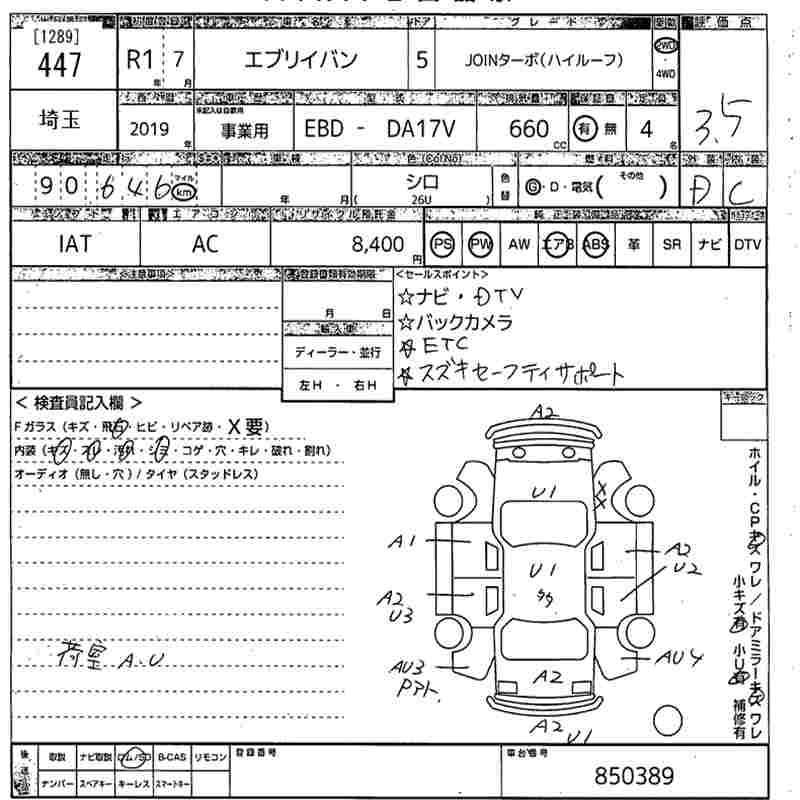 [1289]
447
R1 7
年 月
エブリイバン
5
JOINターボ(ハイルーフ)
2WD
・
4WD
評価点
埼玉
2019
年
未記入は自家用
事業用
EBD - DA17V
660
CC
有 無
4
3.5
90 646
マイル
km
年 月
色(ColNo)
シロ
( 26U )
色替
G・D・電気( その他 )
D
C
IAT
AC
リサイクル預託金
8,400
円
PS PW AW エアB ABS 革 SR ナビ DTV
<注意事項>
登録書類有効期限
月 日
輸入車
ディーラー・並行
左H ・ 右H
<セールスポイント>
☆ナビ・DTV
☆バックカメラ
☆ETC
☆スズキセーフティサポート
< 検査員記入欄 >
Fガラス(キズ・飛石・ヒビ・リペア跡・X要)
内装(キズ・スレ・汚れ・シミ・コゲ・穴・キレ・破れ・割れ)
オーディオ(無し・穴)/タイヤ(スタッドレス)
荷室 A.U
A2
U1
X
X
A1
A2
U2
U1
A2
U3
AU3
Pアト.
AU4
A2
A2
U1
キーロック
ホイル・CPキズ ワレ/ドアミラーキズ ワレ
小キズ有 小U有 補修有
後送品
取説 ナビ取説 ロム/SD B-CAS リモコン
ナンバー スペアキー キーレス スマートキー
登録番号
車台番号
850389